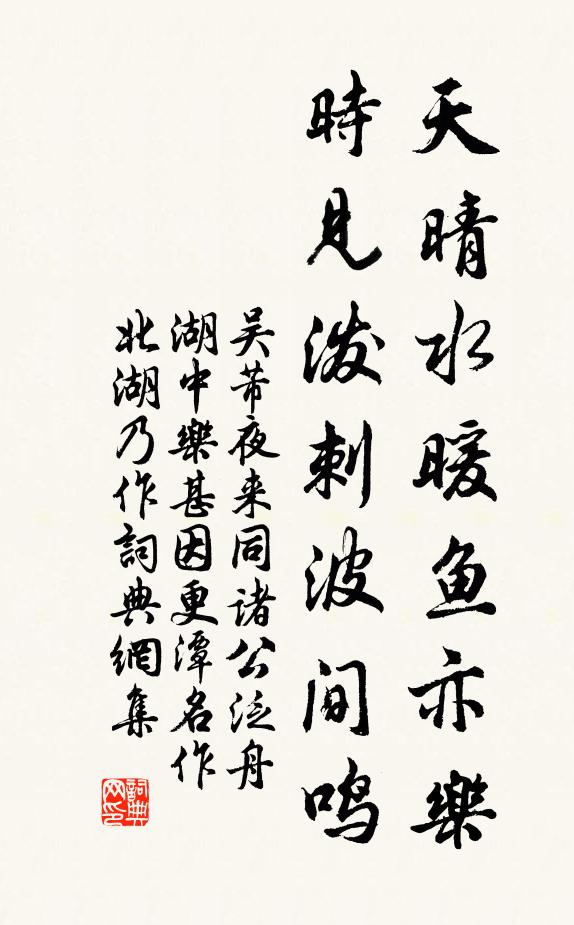 天晴水暖鱼亦樂
時見泼刺波间鸣
吴芾夜来同诸公泛舟
湖中樂甚因更潭名作
北湖乃作詞典網集
詞典
网印